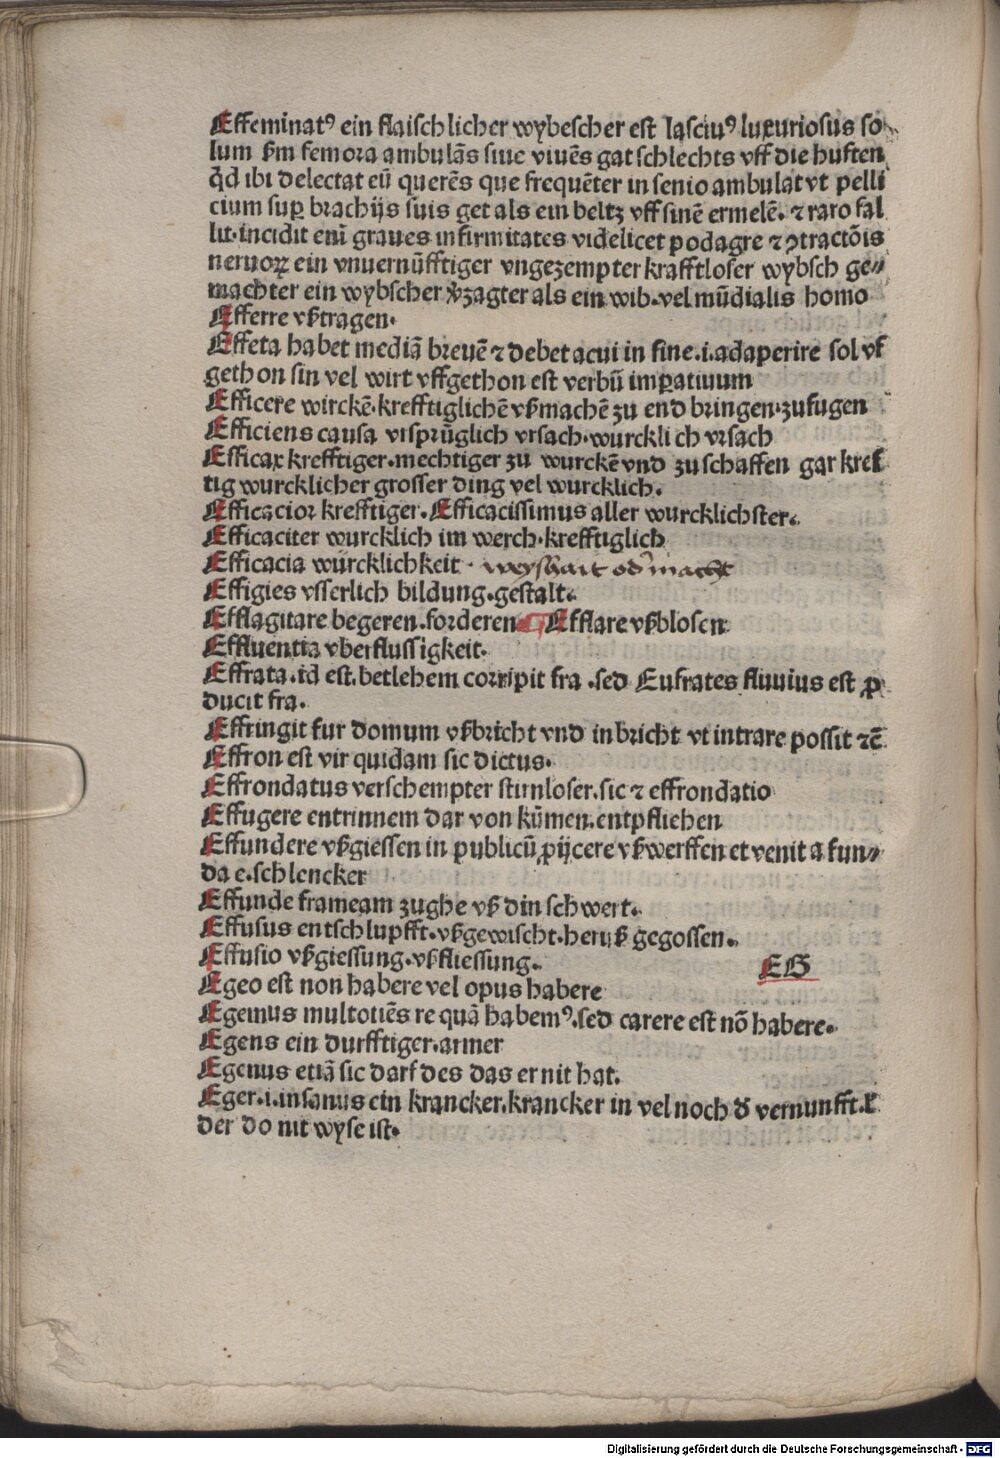 Effeminatꝰ ein flaischlicher wybescher est lasciuꝰ luxuriosus so
lum ẜm femora ambulās siue viuēs gat schlechts vff die huften
q̄d ibi delectat eū querēs que frequēter in senio ambulat vt pelli
cium suꝑ brachijs suis get als ein beltz vff sinē ermelē. ⁊ raro fal
lit. incidit eni̅ graues infirmitates videlicet podagre ⁊ ꝯtractōis
neruoꝝ ein vnuernüfftiger vngezempter krafftloser wybsch ge⸗
machter ein wybscher v̓zagter als ein wib. vel mūdialis homo
Efferre vßtragen.
Effeta habet mediā breuē ⁊ debet acui in fine .i. adaperire sol vf
gethon sin vel wirt vffgethon est verbū imꝑatiuum
Efficere wirckē. krefftiglichē vßmachē zu end bringen. zufugen
Efficiens causa vrsprūglich vrsach. wurcklich vrsach
Efficax krefftiger. mechtiger zu wurckē vnd zu schaffen gar kref
tig wurcklicher grosser ding vel wurcklich.
Efficacior krefftiger. Efficacissimus aller wurcklichster.
Efficaciter wurcklich im werch. krefftiglich
Efficacia würcklichkeit . weyshait od̓ macht
Effigies vsserlich bildung. gestalt.
Efflagitare begeren. forderen ¶ Efflare vßblosen
Effluentia vberflussigkeit.
Effrata .id est. betlehem corripit fra . sed Eufrates fluuius est ꝓ
ducit fra.
Effringit fur domum vßbricht vnd inbricht vt intrare possit ⁊c̄
Effron est vir quidam sic dictus.
Effrondatus verschempter stirnloser. sic ⁊ effrondatio
Effugere entrinnem dar von kūmen. entpfliehen
Effundere vßgiessen in publicū ꝓijcere vßwerffen et venit a fun⸗
da e. schlencker
Effunde frameam zughe vß din schwert.
Effusus entschlupfft. vßgewischt. heruß gegossen.
Effusio vßgiessung. vßfliessung.
EG
Egeo est non habere vel opus habere
Egemus multotiēs re quā habemꝰ. sed carere est nō habere.
Egens ein durfftiger. armer
Egenus etiā sic darf des das er nit hat.
Eger .i. insanus ein krancker. krancker in vel noch d̓ vernunfft. ł
der do nit wyse ist.
Digitalisierung gefördert durch die Deutsche Forschungsgemeinschaft - DFG